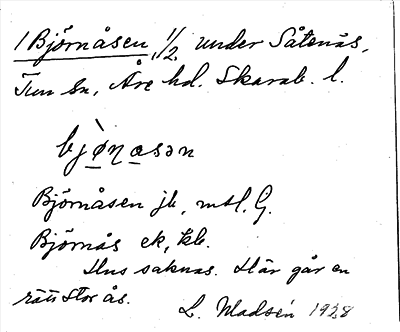 1 Björnåsen, 1/2 under Såtenäs,
Tun sn, Åse hd. Skarab. l.
bjø̀ṇasən
Björnåsen jb, mtl. G.
Björnås ek, kb.
Hus saknas. Här går en
rätt stor ås.
L. Madsén 1928